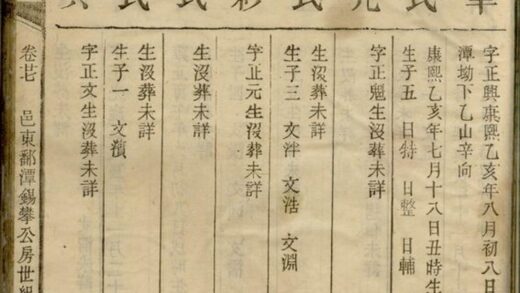 氏
氏
氏
字正興康熙乙亥年八月初八日
潭坳下乙山辛向
康熙乙亥年七月十八日丑時生
生子五 日特 日整 日輔
字正魁生沒葬未詳
生沒葬未詳
生子三 文泮 文浩 文淵
字正元生沒葬未詳
生沒葬未詳
生子一 文
字正文生沒葬未詳
卷廿七 邑東鄱潭錫攀公房世